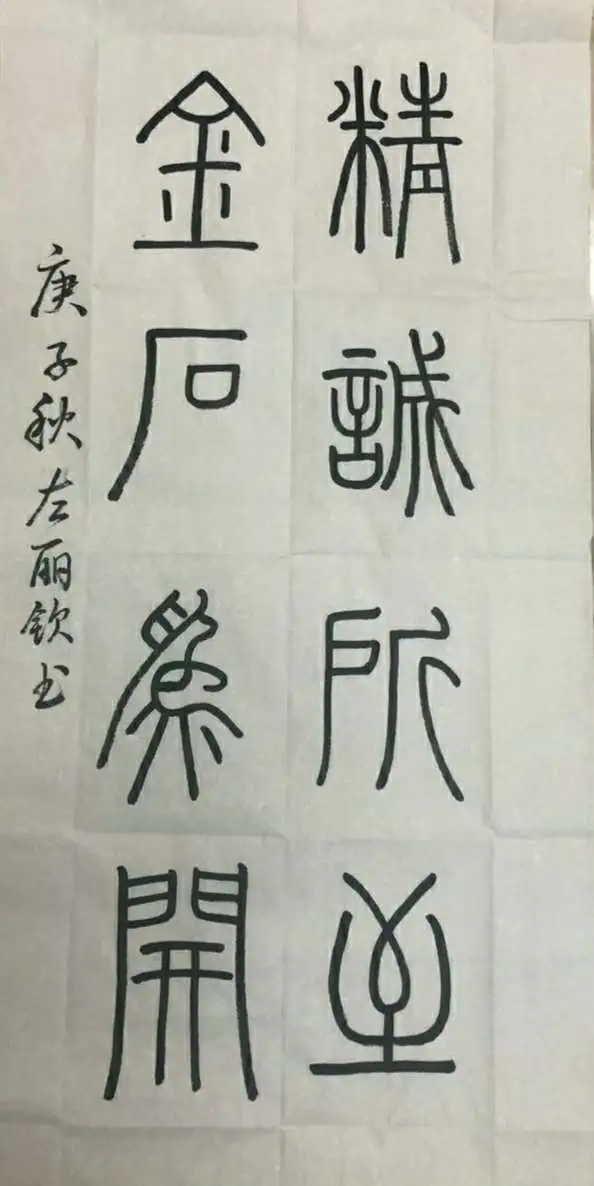 精誠所至
金石為開
庚子秋左丽钦书